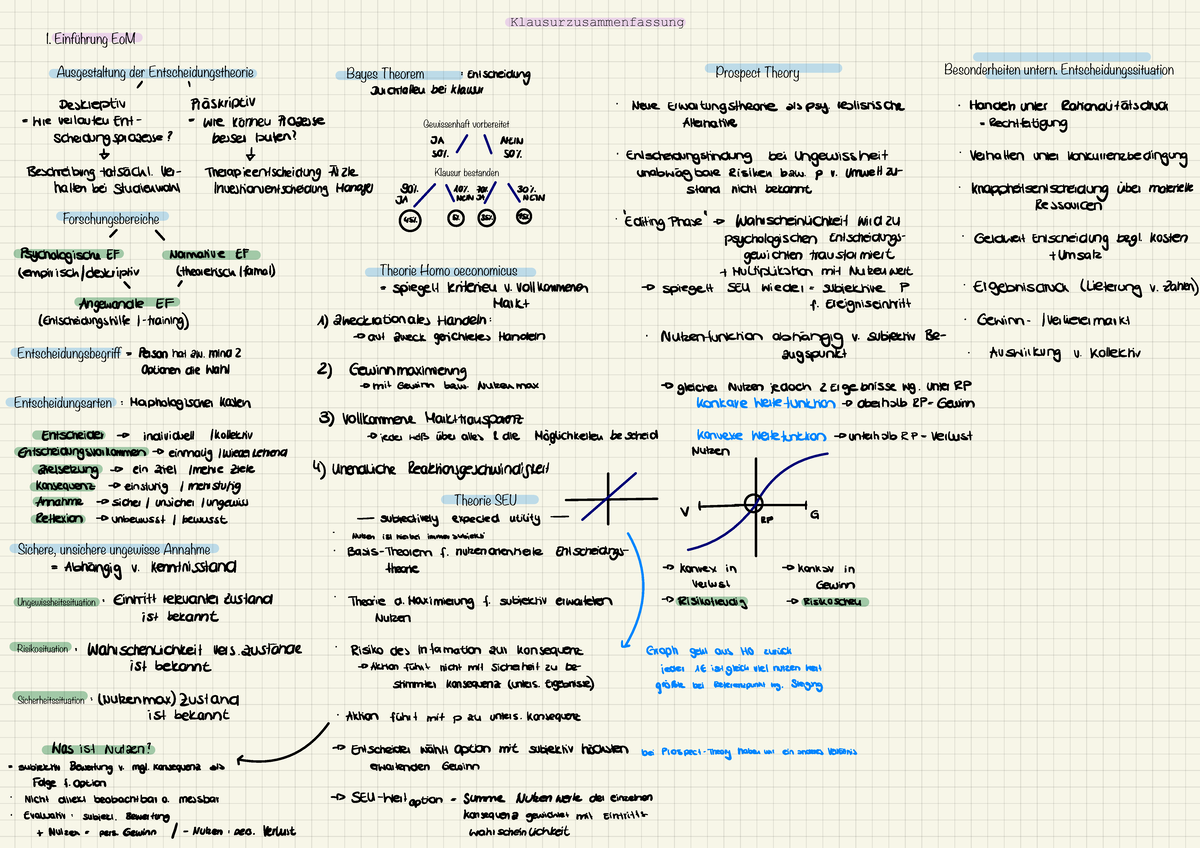 Klausurzusammenfassung
1. Einführung EoM
Ausgestaltung der Entscheidungstheorie
Deskriptiv
= wie verlaufen Ent-
scheidungsprozesse?
Beschreibung tatsächl. Ver-
halten bei Studienwahl
Präskriptiv
= wie können Prozesse
besser laufen?
Therapieentscheidung Ärzte
Investitionentscheidung Manager
Forschungsbereiche
Psychologische EF
(empirisch/deskriptiv
Normative EF
(theoretisch/formal)
Angewandte EF
(Entscheidungshilfe/-training)
Entscheidungsbegriff = Person hat zw. mind 2
Optionen die Wahl
Entscheidungsarten: Morphologischer Kasten
Entscheider → individuell / kollektiv
Entscheidungsvorkommen → einmalig / wiederkehrend
Zielsetzung → ein Ziel / mehre Ziele
Konsequenz → einstufig / mehrstufig
Annahme → sicher / unsicher / ungewiss
Reflexion → unbewusst / bewusst
Sichere, unsichere ungewisse Annahme
= Abhängig v. Kenntnisstand
Ungewissheitssituation: Eintritt relevanter Zustand
ist bekannt
Risikosituation: Wahrschenlichkeit vers. Zustände
ist bekannt
Sicherheitssituation: (Nutzenmax) Zustand
ist bekannt
Was ist Nutzen?
= subjektiv Bewertung v. mgl. Konsequenz als
Folge f. Option
· Nicht direkt beobachtbar o. messbar
· Evaluativ: subjekt. Bewertung
+ Nutzen = pers. Gewinn / - Nutzen: pers. Verlust
Bayes Theorem: Entscheidung
Durchfallen bei Klausur
Gewissenhaft vorbereitet
JA NEIN
50% 50%
Klausur bestanden
90% 10% 70% 30%
JA NEIN JA NEIN
45% 5% 35% 15%
Theorie Homo oeconomicus
= spiegelt Kriterien v. vollkommenen
Markt
1) Zweckrationales Handeln:
→ auf Zweck gerichtetes Handeln
2) Gewinnmaximierung
→ mit Gewinn bzw. Nutzenmax
3) Vollkommene Markttransparenz
→ jeder weiß über alles & die Möglichkeiten bescheid
4) Unendliche Reaktionsgeschwindigkeit
Theorie SEU
— subjectively expected utility —
· Nutzen ist hierbei immer subjektiv
· Basis-Theorem f. nutzenorientierte Entscheidungs-
theorie
· Theorie d. Maximierung f. subjektiv erwarteten
Nutzen
· Risiko des Information zur Konsequenz
→ Aktion führt nicht mit Sicherheit zu be-
stimmter Konsequenz (unters. Ergebnisse)
· Aktion führt mit p zu unters. Konsequenz
→ Entscheider wählt Option mit subjektiv höchsten
erwartenden Gewinn
→ SEU-Wert Option = Summe Nutzenwerte der einzelnen
Konsequenz gewichtet mit Eintritts-
wahrscheinlichkeit
Prospect Theory
· Neue Erwartungstheorie als psy. realisrische
Alternative
· Entscheidungsfindung bei Ungewissheit
unabwägbare Risiken bzw. p v. Umweltzu-
stand nicht bekannt
· 'Editing Phase' → Wahrscheinlichkeit wird zu
psychologischen Entscheidungs-
gewichten transformiert
+ Multiplikation mit Nutzenwert
→ spiegelt SEU wieder = subjektive P
f. Ereigniseintritt
· Nutzenfunktion abhängig v. subjektiv Be-
zugspunkt
→ gleicher Nutzen jedoch 2 Ergebnisse wg. unter RP
Konkave Wertefunktion → oberhalb RP = Gewinn
Konvexe Wertefunktion → unterhalb RP = Verlust
Nutzen
V
G
RP
→ konvex in
Verlust
→ Risikofreudig
→ konkav in
Gewinn
→ Risikoscheu
Graph geht aus HO zurück
jeder 1€ ist gleich viel nutzen wert
größte bei Referenzpunkt wg. Steigung
bei Prospect-Theory haben wir ein anderes Verhältnis
Besonderheiten untern. Entscheidungssituation
· Handeln unter Rationalitätsdruck
= Rechtfertigung
· Verhalten unter Konkurrenzbedingung
· Knappheitsentscheidung über materielle
Ressourcen
· Geldwert Entscheidung bzgl. Kosten
+ Umsatz
· Ergebnisdruck (Lieferung v. Zahlen)
· Gewinn- / Verlierermarkt
· Auswirkung v. Kollektiv